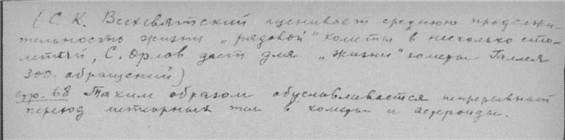 (С. К. Всехсвятский оценивает среднюю продолжи-
тельность жизни „рядовой" кометы в несколько сто-
летий, С. Орлов дает для „жизни" кометы Галлея
300 обращений)
стр. 68 Таким образом обуславливается непрерывный
переход метеорных тел в кометы и астероиды.